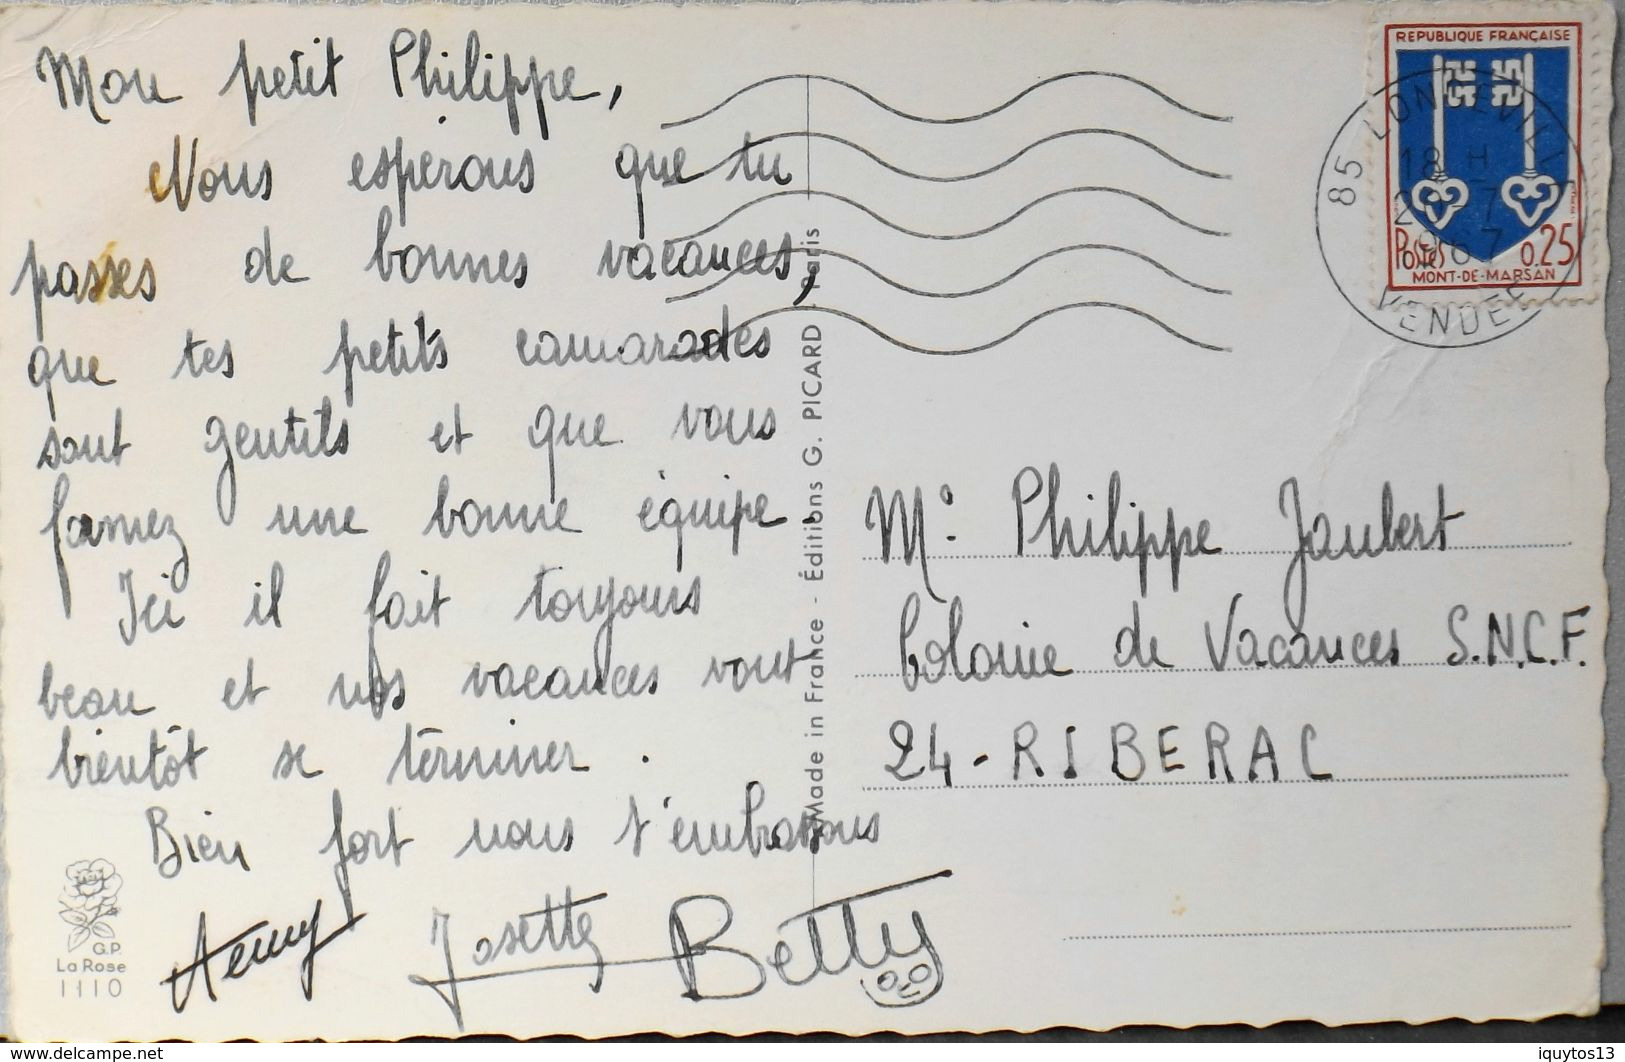 Mon petit Philippe,
Nous espérons que tu
passes de bonnes vacances,
que tes petits camarades
sont gentils et que vous
formez une bonne équipe.
Ici il fait toujours
beau et nos vacances vont
bientôt se terminer.
Bien fort nous t'embrassons
Josette Betty
G.P.
La Rose
1110
Made in France - Éditions G. PICARD Paris
REPUBLIQUE FRANÇAISE
Postes 0.25
MONT-DE-MARSAN
85 LONGEVILLE
18 H
VENDEE
Mr. Philippe Jaubert
Colonie de Vacances S.N.C.F.
24-RIBERAC
iquytos13
delcampe.net